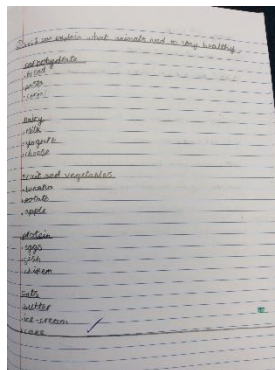 explain what animals need to stay healthy.
carbohydrate
- bread
- pasta
- cereal
Dairy
- milk
- yogurt
- cheese
fruit and vegetables
- tomato
- potato
- apple
protein
- eggs
- fish
- chicken
fats
- butter
- ice-cream
- cake